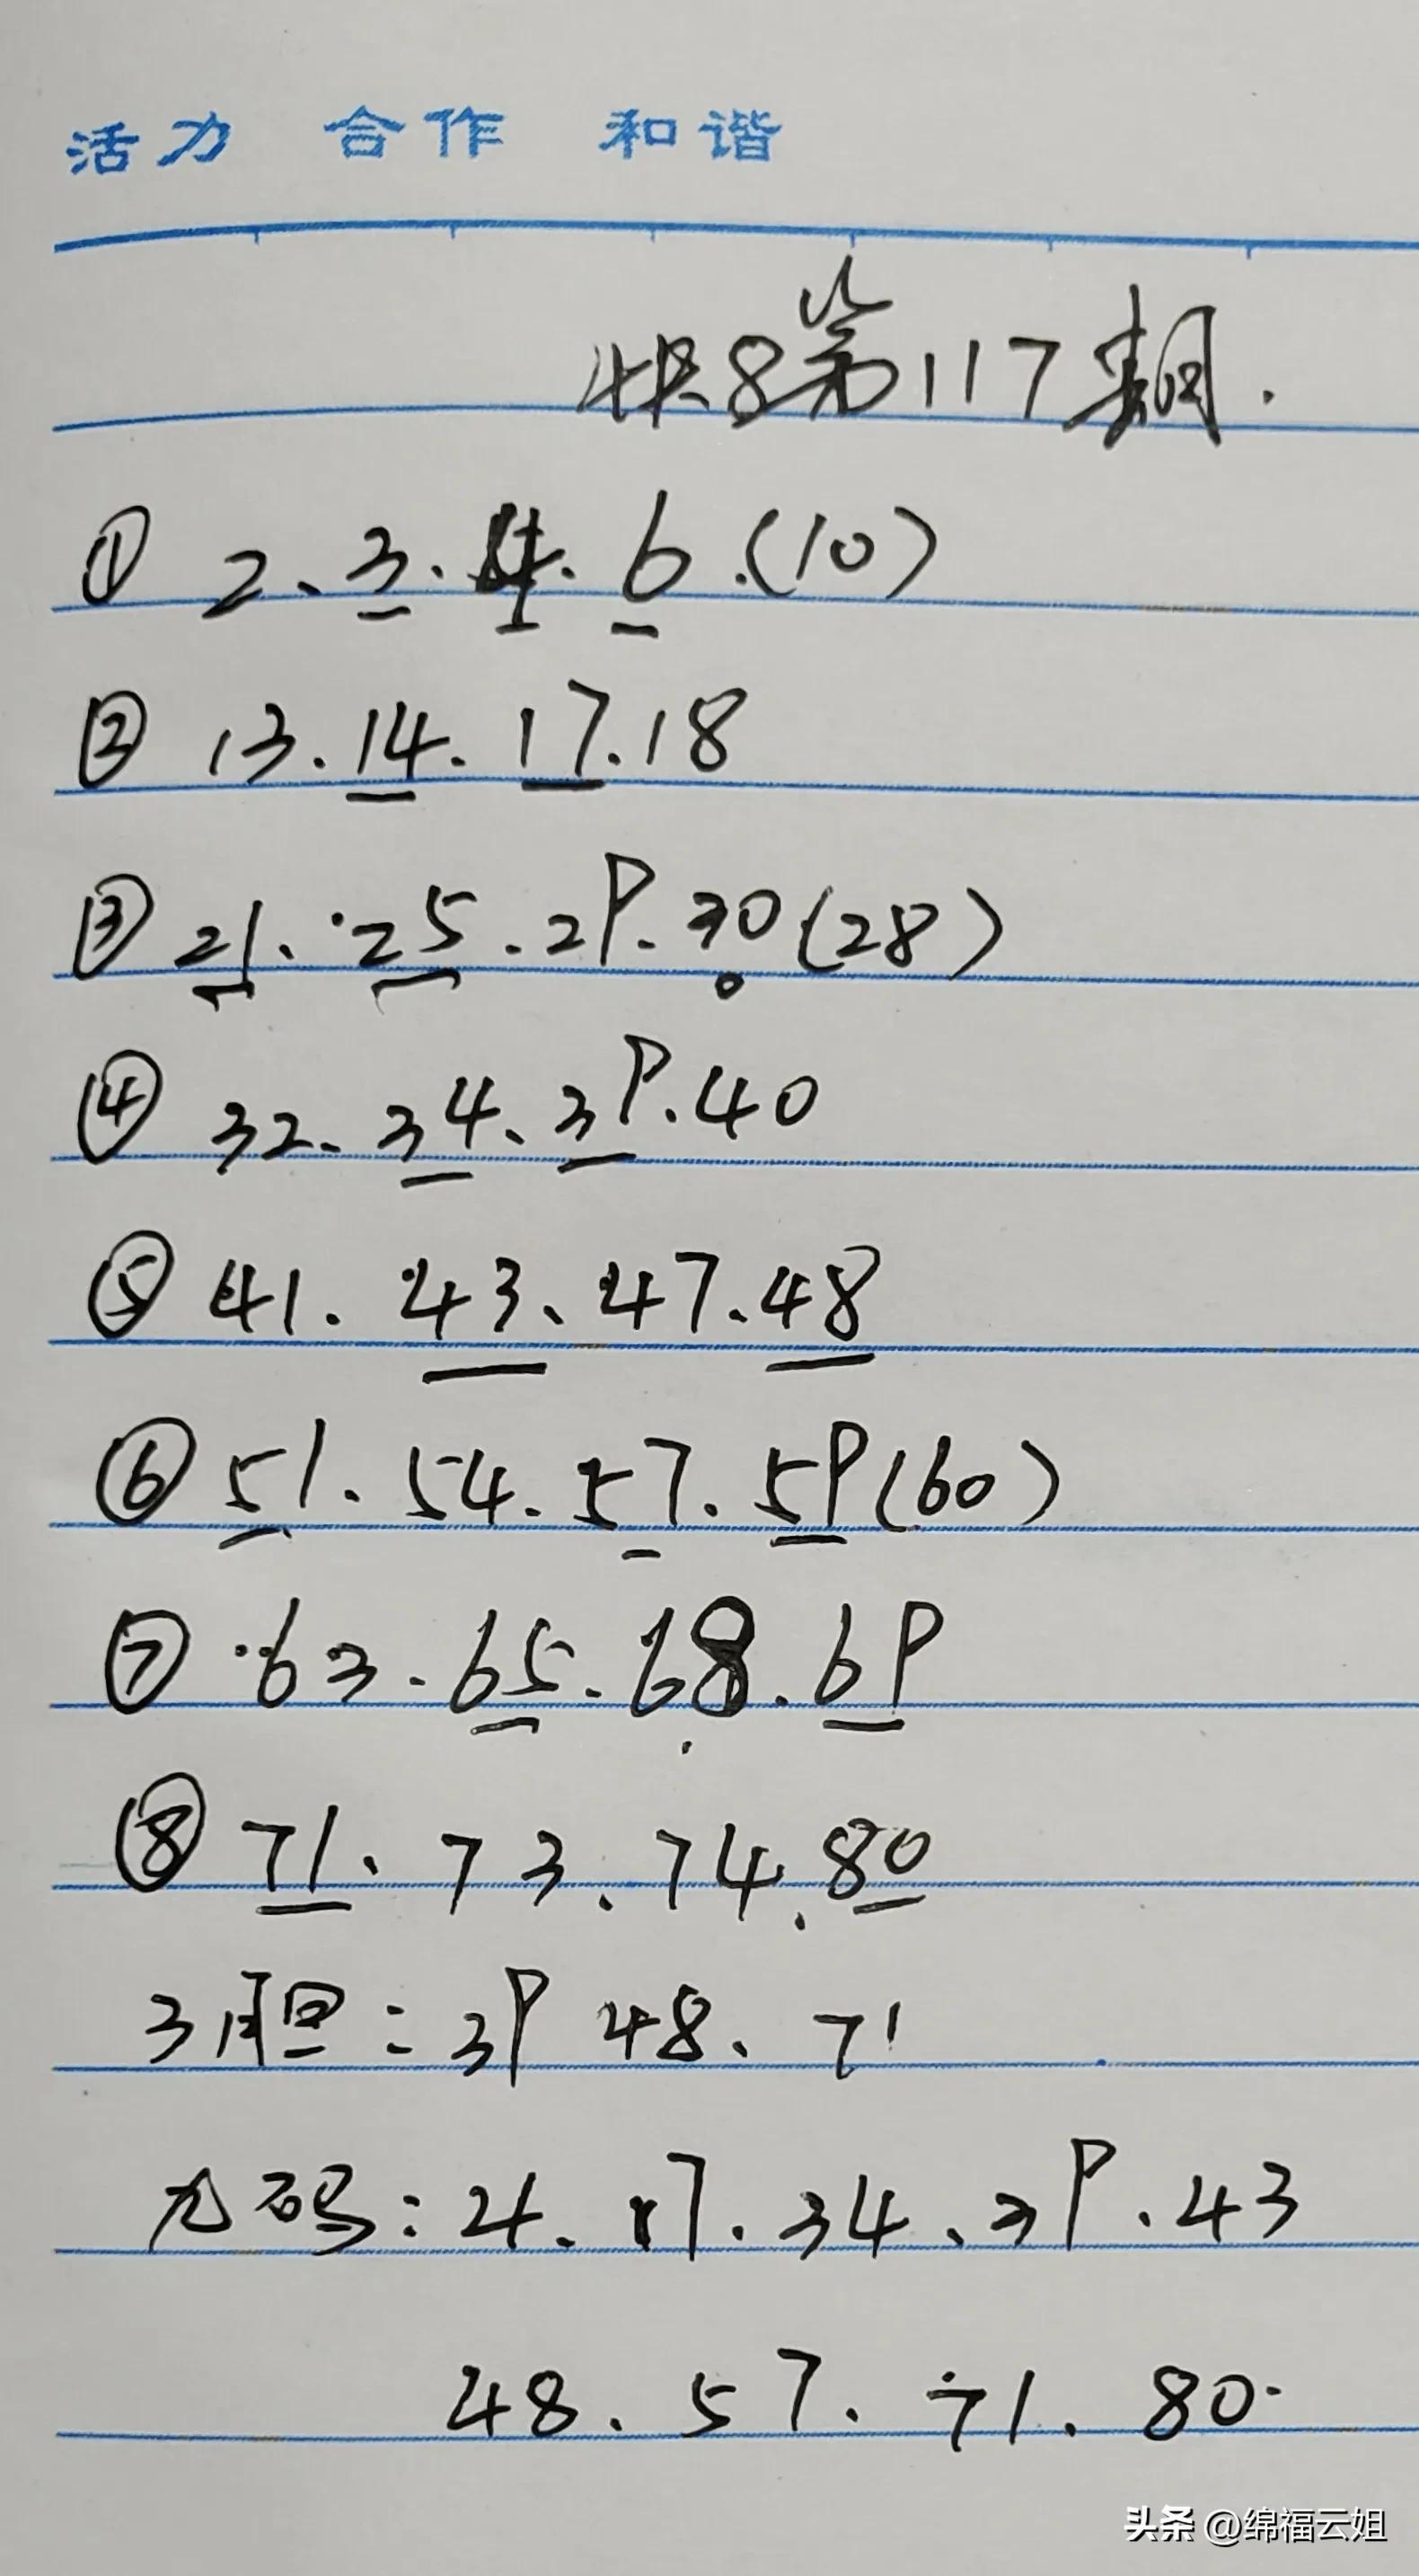 活力 合作 和谐
快8第117期.
① 2、3.4.6.(10)
② 13.14.17.18
③ 21.25.29.30(28)
④ 32、34、39.40
⑤ 41.43、47.48
⑥ 51.54.57.59(60)
⑦ 63.65.68.69
⑧ 71、73.74.80
3胆:39 48、71
九码:4.17.34、39.43
48.57.71.80.
头条 @绵福云姐